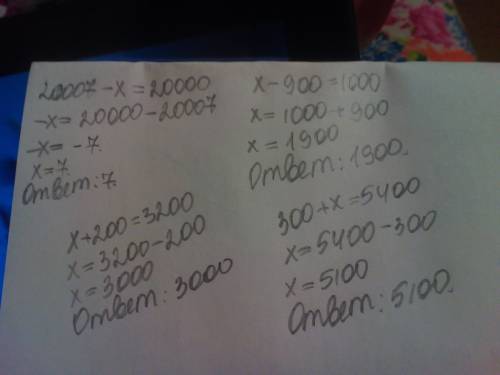 20007 - x = 20000
-x = 20000 - 20007
-x = -7
x = 7
Ответ: 7.
x - 900 = 1000
x = 1000 + 900
x = 1900
Ответ: 1900.
x + 200 = 3200
x = 3200 - 200
x = 3000
Ответ: 3000
300 + x = 5400
x = 5400 - 300
x = 5100
Ответ: 5100.